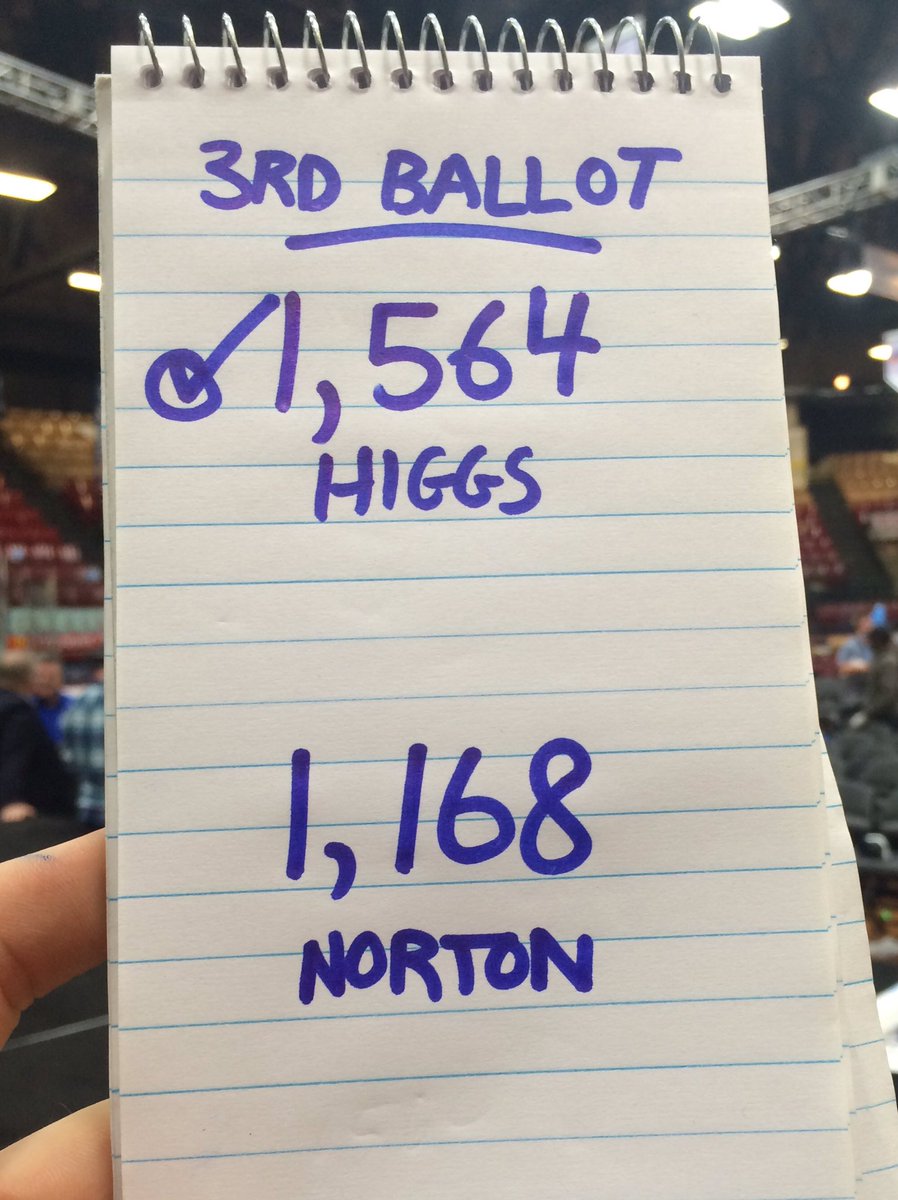 3RD BALLOT
✓1,564
HIGGS
1,168
NORTON